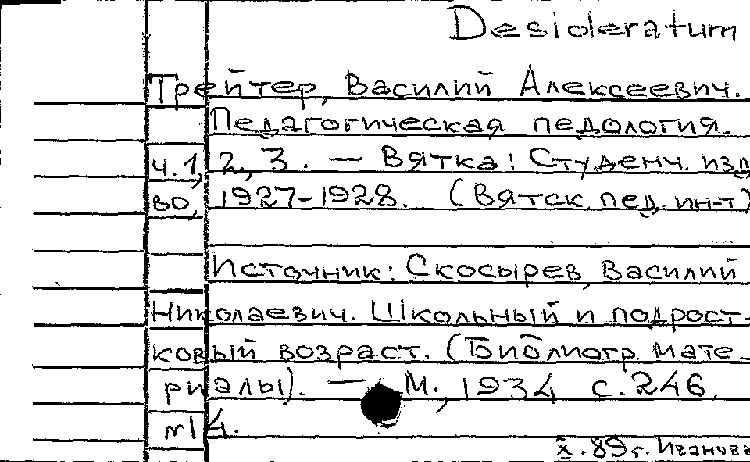 Desideratum
Трейтер, Василий Алексеевич.
Педагогическая педология.
ч.1, 2, 3. — Вятка: Студенч. изд-
во, 1927-1928. (Вятск. пед. ин-т)
Источник: Скосырев, Василий
Николаевич. Школьный и подрост-
ковый возраст. (Библиогр. мате-
риалы). — М., 1934 с. 246.
X. 89 г. Иванова